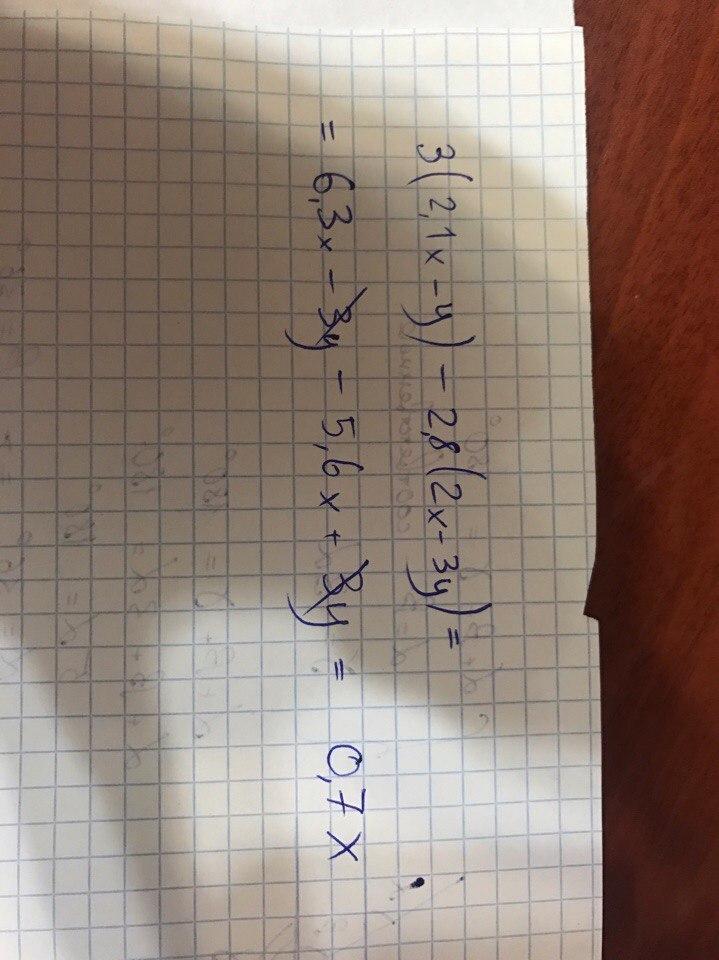 3(2,1x - y) - 2,8(2x - 3y) =
= 6,3x - 3y - 5,6x + 3y = 0,7x